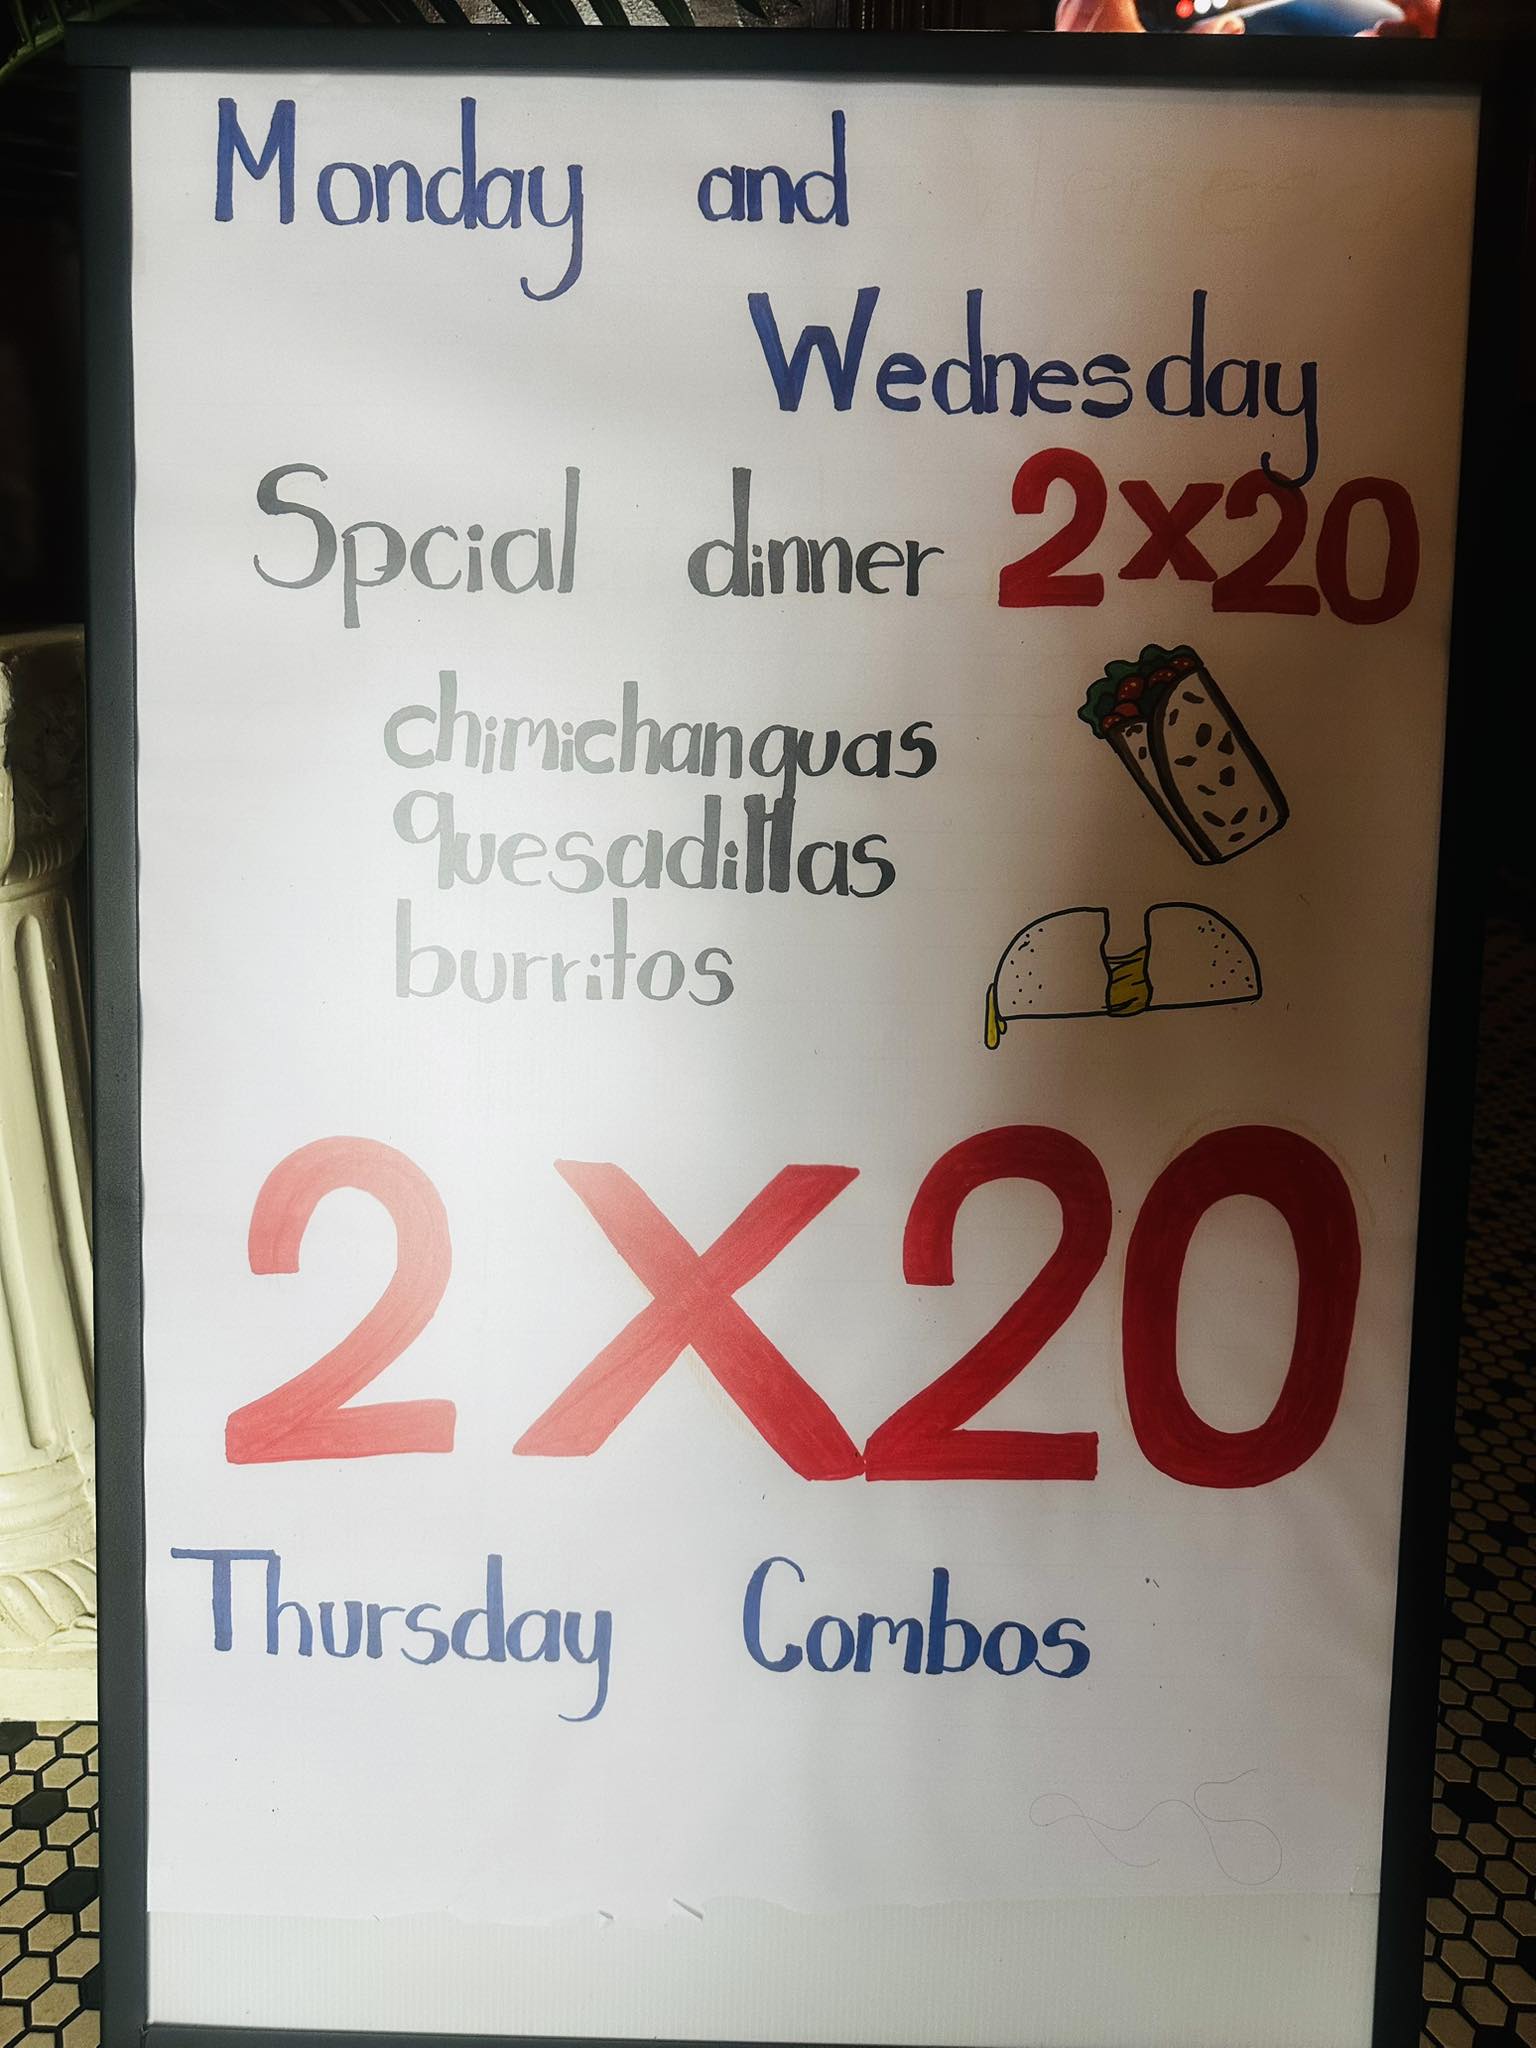 Monday and
Wednesday
Spcial dinner 2x20
chimichanguas
quesadillas
burritos
2X20
Thursday Combos